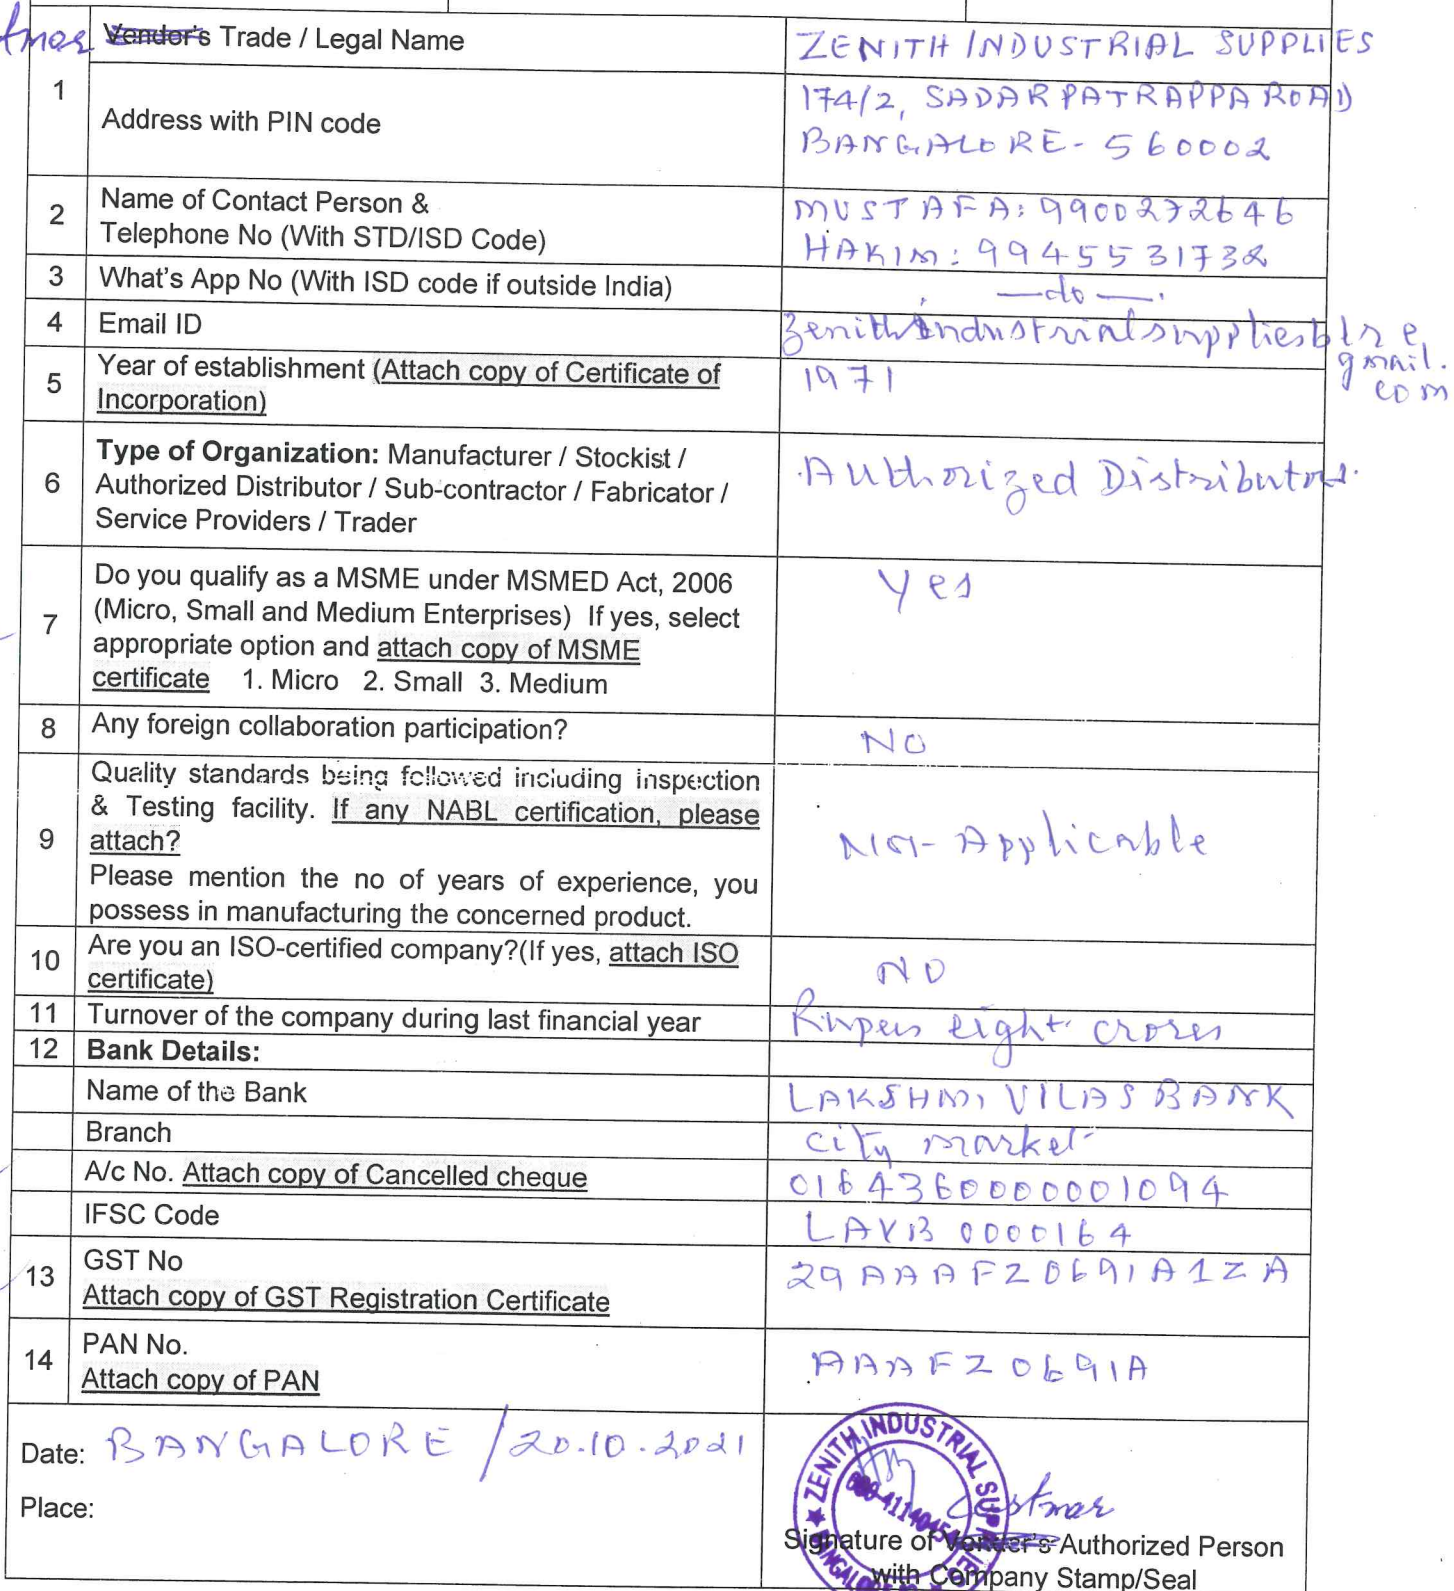 Vendor's Trade / Legal Name
ZENITH INDUSTRIAL SUPPLIES
1
Address with PIN code
174/2, SADAR PATRAPPA ROAD
BANGALORE - 560002
2
Name of Contact Person &
Telephone No (With STD/ISD Code)
MUSTAFA: 9900272646
HAKIM: 9945531732
3
What's App No (With ISD code if outside India)
—do—
4
Email ID
zenithindustrialsuppliesblr@
gmail.
com
5
Year of establishment (Attach copy of Certificate of
Incorporation)
1971
6
Type of Organization: Manufacturer / Stockist /
Authorized Distributor / Sub-contractor / Fabricator /
Service Providers / Trader
Authorized Distributors.
7
Do you qualify as a MSME under MSMED Act, 2006
(Micro, Small and Medium Enterprises) If yes, select
appropriate option and attach copy of MSME
certificate 1. Micro 2. Small 3. Medium
Yes
8
Any foreign collaboration participation?
NO
9
Quality standards being followed including inspection
& Testing facility. If any NABL certification, please
attach?
Please mention the no of years of experience, you
possess in manufacturing the concerned product.
Not-Applicable
10
Are you an ISO-certified company?(If yes, attach ISO
certificate)
NO
11
Turnover of the company during last financial year
Rupees eight crores
12
Bank Details:
Name of the Bank
LAKSHMI VILAS BANK
Branch
City market
A/c No. Attach copy of Cancelled cheque
0164360000001094
IFSC Code
LAVB 0000164
13
GST No
Attach copy of GST Registration Certificate
29AAAFZ0691A1ZA
14
PAN No.
Attach copy of PAN
AAAFZ0691A
Date: BANGALORE / 20.10.2021
Place:
ZENITH INDUSTRIAL SUPPLIES
Signature of Vendor's Authorized Person
with Company Stamp/Seal